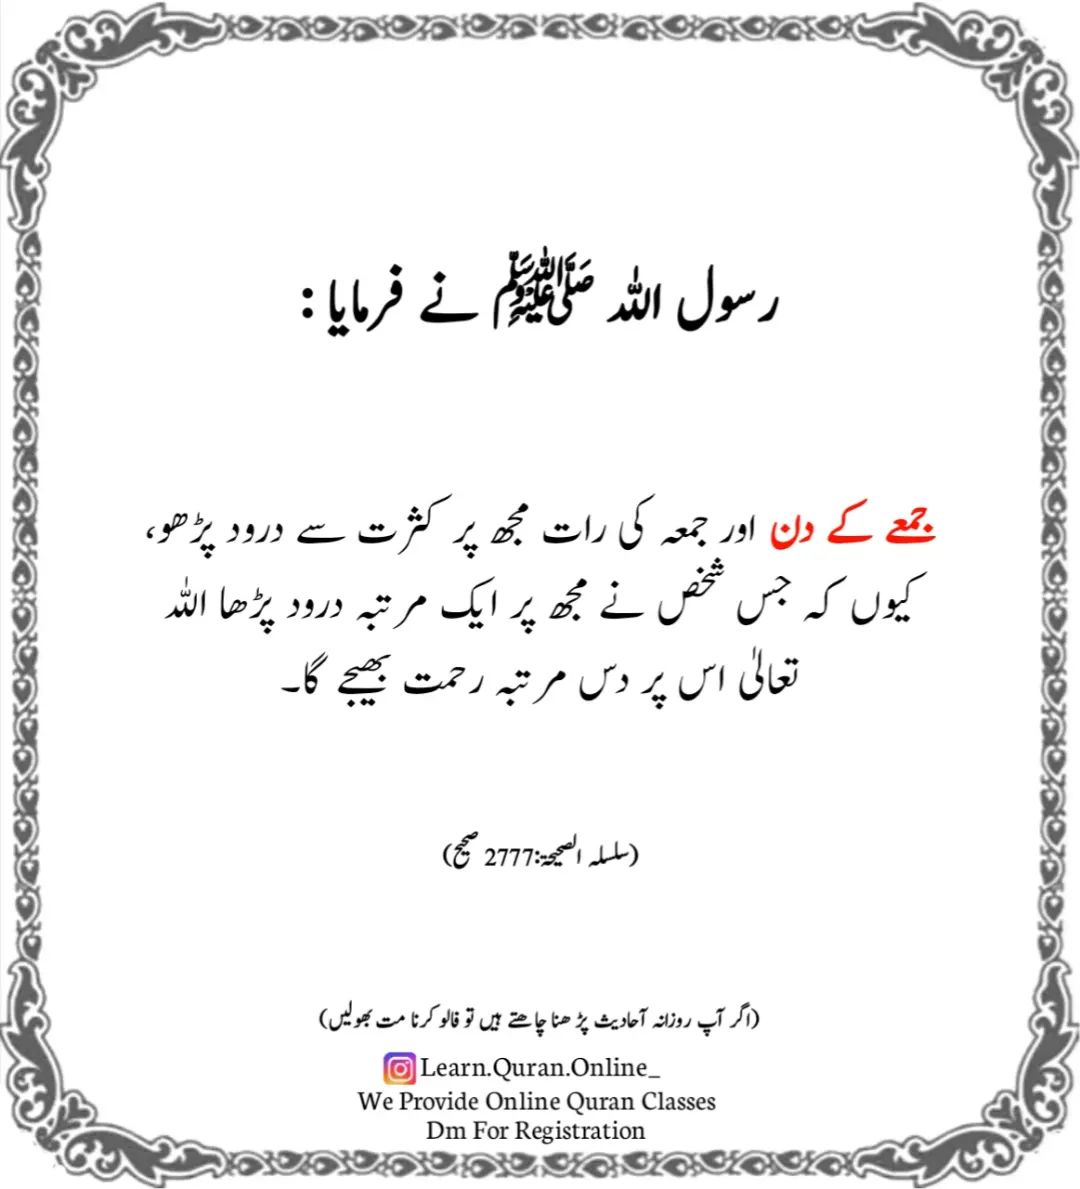 رسول اللہ ﷺ نے فرمایا :
جمعے کے دن اور جمعہ کی رات مجھ پر کثرت سے درود پڑھو،
کیوں کہ جس شخص نے مجھ پر ایک مرتبہ درود پڑھا اللہ
تعالیٰ اس پر دس مرتبہ رحمت بھیجے گا۔
(سلسلہ الصحیحۃ:2777 صحیح)
(اگر آپ روزانہ آحادیث پڑھنا چاھتے ہیں تو فالو کرنا مت بھولیں)
Learn.Quran.Online_
We Provide Online Quran Classes
Dm For Registration